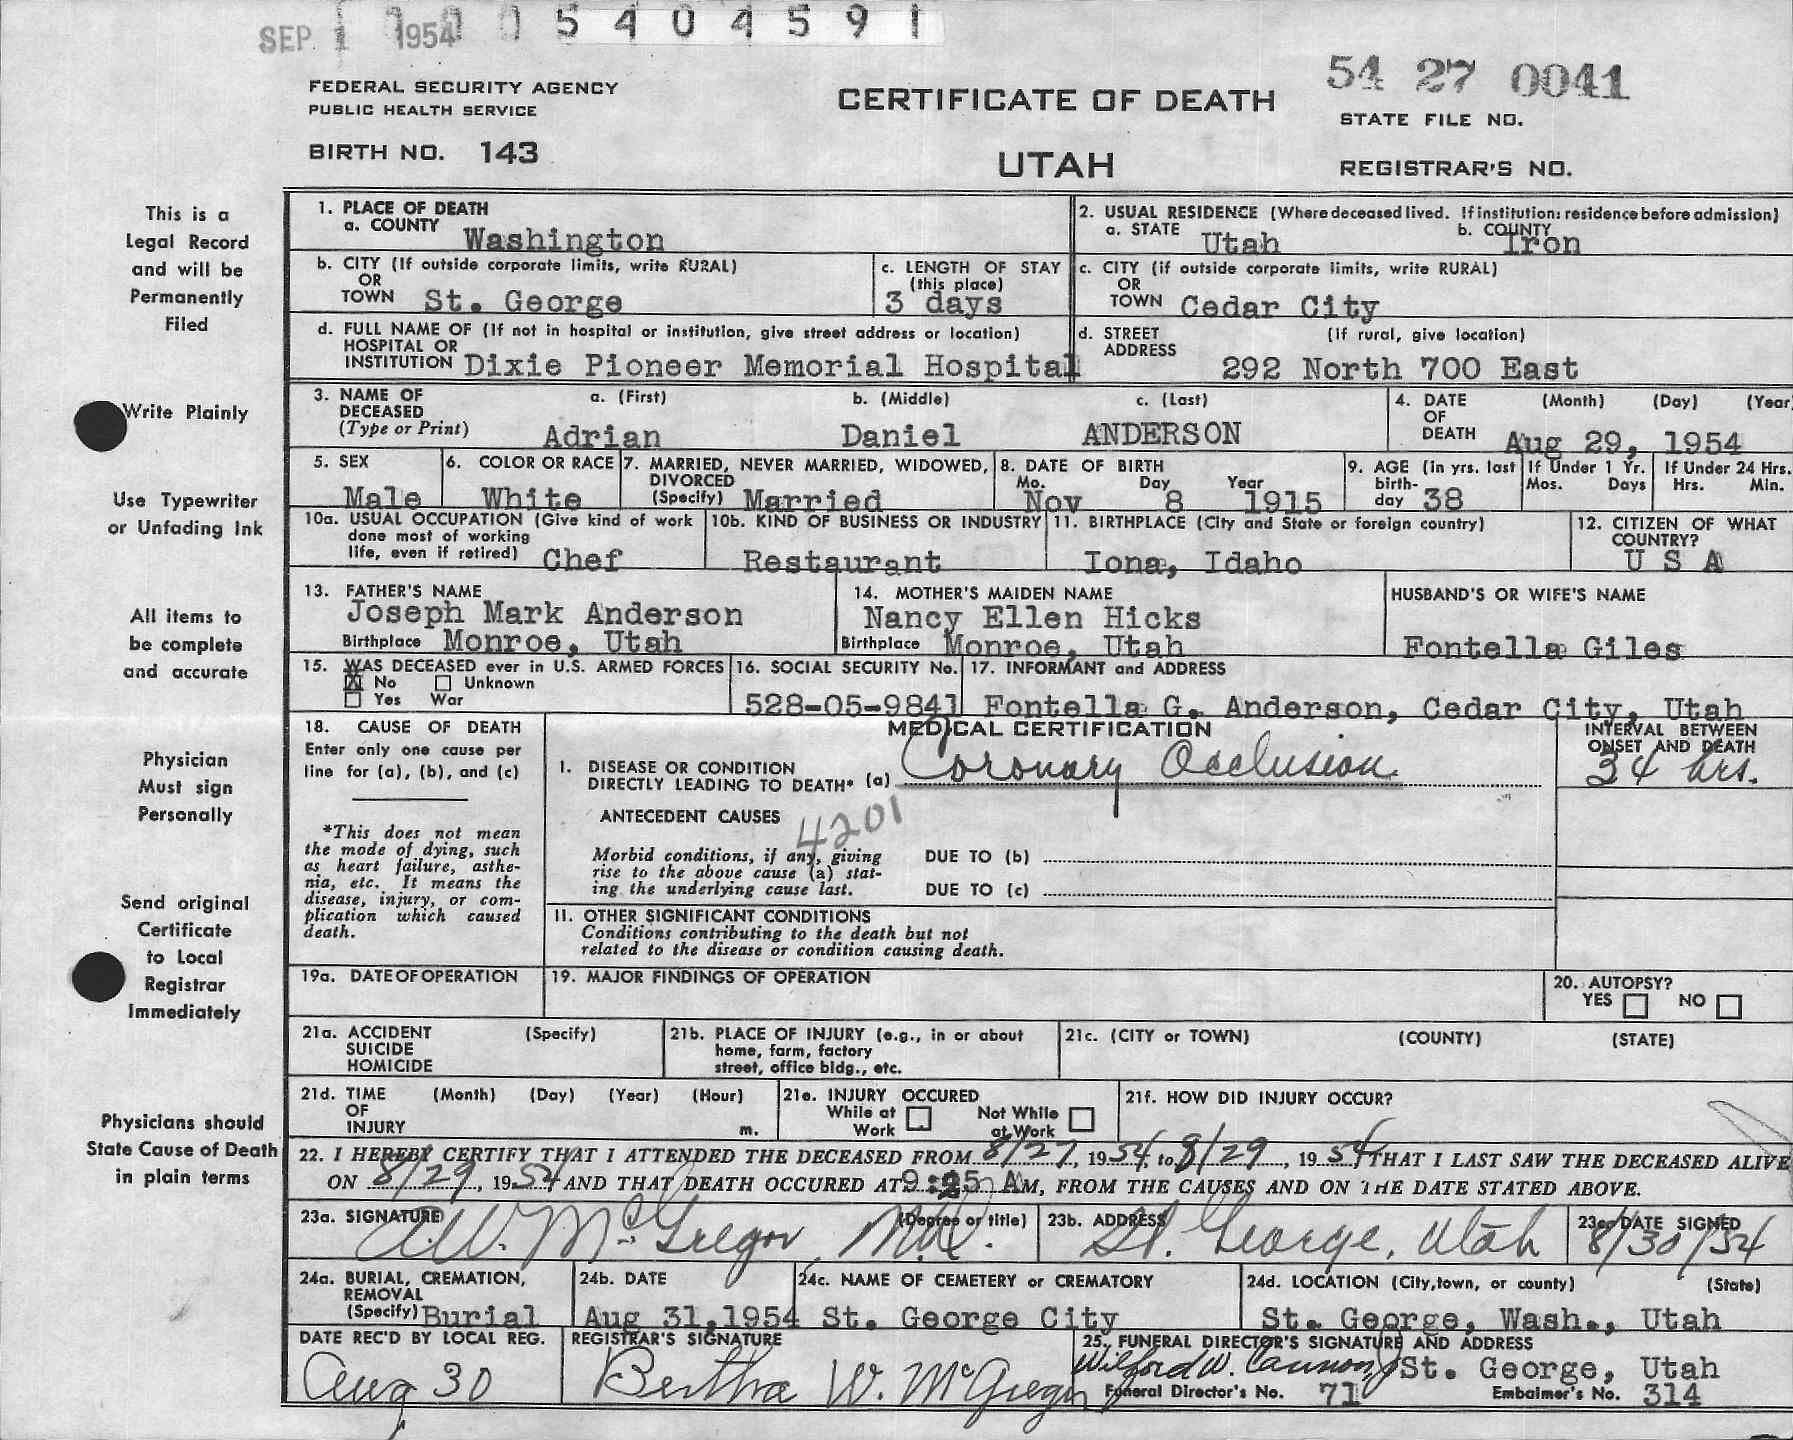 SEP 1 1954
5404591
FEDERAL SECURITY AGENCY
PUBLIC HEALTH SERVICE
BIRTH NO. 143
CERTIFICATE OF DEATH
UTAH
54 27 0041
STATE FILE NO.
REGISTRAR'S NO.
This is a
Legal Record
and will be
Permanently
Filed
Write Plainly
Use Typewriter
or Unfading Ink
All items to
be complete
and accurate
Physician
Must sign
Personally
Send original
Certificate
to Local
Registrar
Immediately
Physicians should
State Cause of Death
in plain terms
1. PLACE OF DEATH
a. COUNTY Washington
2. USUAL RESIDENCE (Where deceased lived. If institution: residence before admission)
a. STATE Utah b. COUNTY Iron
b. CITY (If outside corporate limits, write RURAL)
OR
TOWN St. George
c. LENGTH OF STAY
(this place)
3 days
c. CITY (if outside corporate limits, write RURAL)
OR
TOWN Cedar City
d. FULL NAME OF (If not in hospital or institution, give street address or location)
HOSPITAL OR
INSTITUTION Dixie Pioneer Memorial Hospital
d. STREET (If rural, give location)
ADDRESS
292 North 700 East
3. NAME OF a. (First) b. (Middle) c. (Last)
DECEASED
(Type or Print) Adrian Daniel ANDERSON
4. DATE (Month) (Day) (Year
OF
DEATH Aug 29, 1954
5. SEX
Male
6. COLOR OR RACE
White
7. MARRIED, NEVER MARRIED, WIDOWED,
DIVORCED
(Specify) Married
8. DATE OF BIRTH
Mo. Day Year
Nov 8 1915
9. AGE (in yrs. last
birth-
day 38
If Under 1 Yr.
Mos. Days
If Under 24 Hrs.
Hrs. Min.
10a. USUAL OCCUPATION (Give kind of work
done most of working
life, even if retired) Chef
10b. KIND OF BUSINESS OR INDUSTRY
Restaurant
11. BIRTHPLACE (City and State or foreign country)
Iona, Idaho
12. CITIZEN OF WHAT
COUNTRY?
U S A
13. FATHER'S NAME
Joseph Mark Anderson
Birthplace Monroe, Utah
14. MOTHER'S MAIDEN NAME
Nancy Ellen Hicks
Birthplace Monroe, Utah
HUSBAND'S OR WIFE'S NAME
Fontella Giles
15. WAS DECEASED ever in U.S. ARMED FORCES
X No Unknown
Yes War
16. SOCIAL SECURITY No.
528-05-9841
17. INFORMANT and ADDRESS
Fontella G. Anderson, Cedar City, Utah
18. CAUSE OF DEATH
Enter only one cause per
line for (a), (b), and (c)
*This does not mean
the mode of dying, such
as heart failure, asthe-
nia, etc. It means the
disease, injury, or com-
plication which caused
death.
MEDICAL CERTIFICATION
I. DISEASE OR CONDITION
DIRECTLY LEADING TO DEATH* (a) Coronary Occlusion
INTERVAL BETWEEN
ONSET AND DEATH
34 hrs.
ANTECEDENT CAUSES
4201
Morbid conditions, if any, giving
rise to the above cause (a) stat-
ing the underlying cause last.
DUE TO (b)
DUE TO (c)
II. OTHER SIGNIFICANT CONDITIONS
Conditions contributing to the death but not
related to the disease or condition causing death.
19a. DATE OF OPERATION
19. MAJOR FINDINGS OF OPERATION
20. AUTOPSY?
YES NO
21a. ACCIDENT (Specify)
SUICIDE
HOMICIDE
21b. PLACE OF INJURY (e.g., in or about
home, farm, factory
street, office bldg., etc.
21c. (CITY or TOWN) (COUNTY) (STATE)
21d. TIME (Month) (Day) (Year) (Hour)
OF
INJURY m.
21e. INJURY OCCURED
While at Work Not While at Work
21f. HOW DID INJURY OCCUR?
22. I HEREBY CERTIFY THAT I ATTENDED THE DECEASED FROM 8/27, 1954, to 8/29, 1954, THAT I LAST SAW THE DECEASED ALIVE
ON 8/29, 1954 AND THAT DEATH OCCURED AT 9:25 AM, FROM THE CAUSES AND ON THE DATE STATED ABOVE.
23a. SIGNATURE (Degree or title)
A.W. McGregor M.D.
23b. ADDRESS
St. George, Utah
23c. DATE SIGNED
8/30/54
24a. BURIAL, CREMATION,
REMOVAL
(Specify) Burial
24b. DATE
Aug 31, 1954
24c. NAME OF CEMETERY or CREMATORY
St. George City
24d. LOCATION (City, town, or county) (State)
St. George, Wash., Utah
DATE REC'D BY LOCAL REG.
Aug 30
REGISTRAR'S SIGNATURE
Bertha W. McGregor
25. FUNERAL DIRECTOR'S SIGNATURE AND ADDRESS
Wilford W. Cannon St. George, Utah
Funeral Director's No. 71 Embalmer's No. 314